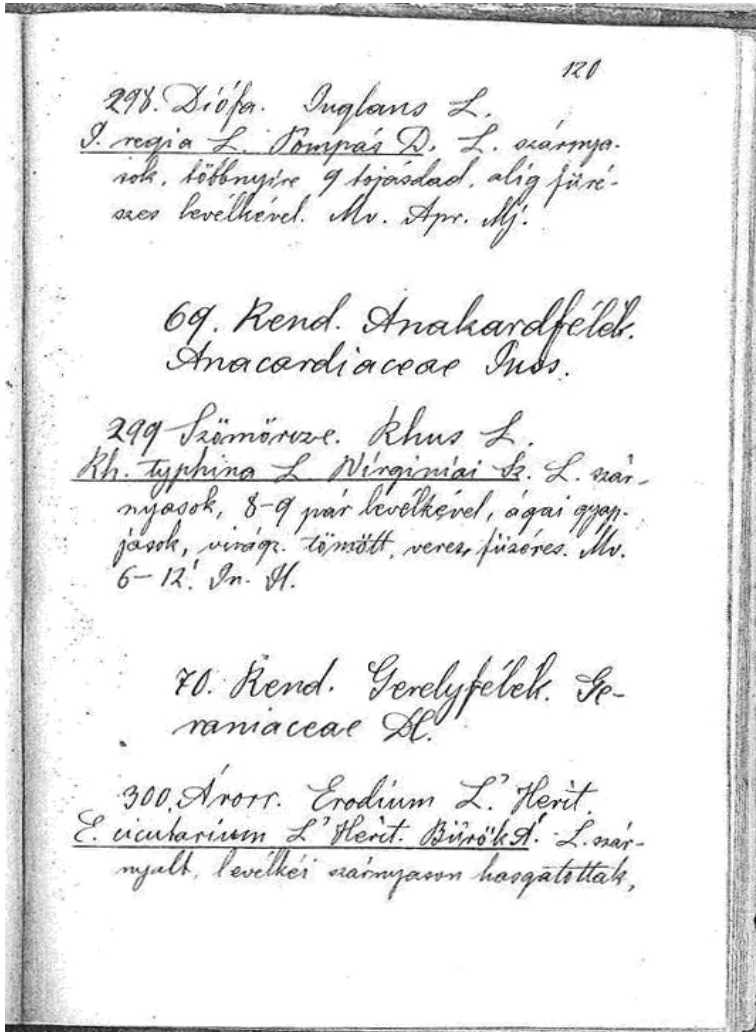 120
298. Diófa. Juglans L.
J. regia L. Pompás D. L. szárnya-
sok, többnyire 9 tojásdad, alig füré-
szes levélkével. Mv. Apr. Mj.
69. Rend. Anakardfélék.
Anacardiaceae Juss.
299 Szömörcze. Rhus L.
Rh. typhina L. Wirginiai Sz. L. szár-
nyasok, 8-9 pár levélkével, ágai gyap-
jasok, virágz. tömött, veres, füzéres. Mv.
6-12! Jn. Jl.
70. Rend. Gerelyfélék. Ge-
raniaceae DC.
300. Árorr. Erodium L' Herit.
E. cicutarium L' Herit. Bürök Á. L. szár-
nyalt, levélkéi szárnyason hasgatottak,